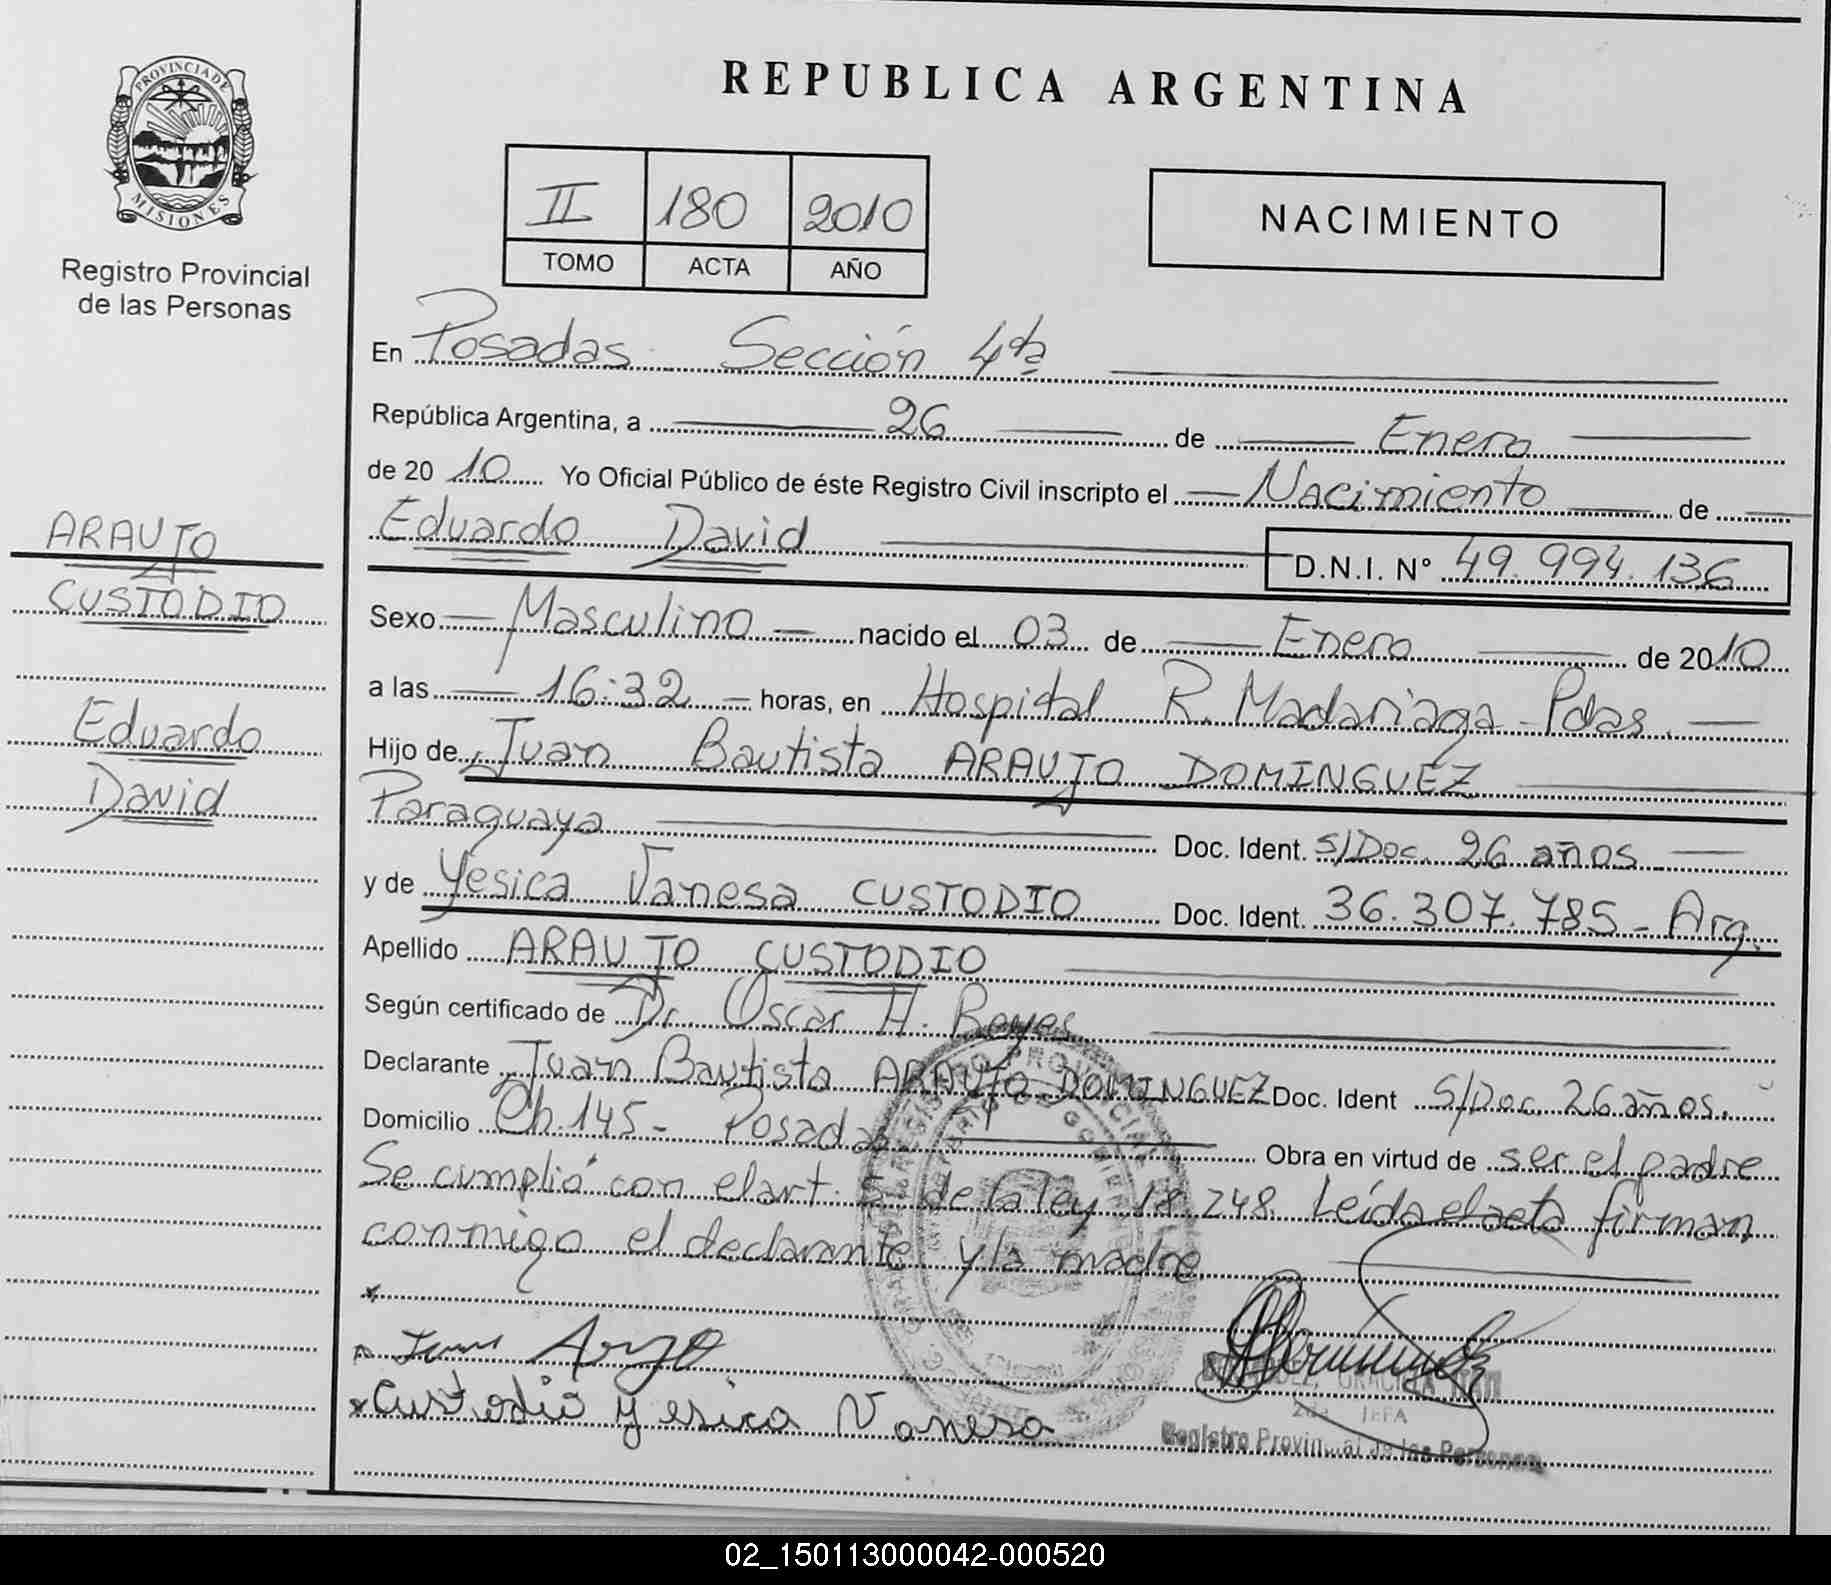 PROVINCIA DE
MISIONES
Registro Provincial
de las Personas
ARAUJO
CUSTODIO
Eduardo
David
REPUBLICA ARGENTINA
II 180 2010
TOMO ACTA AÑO
NACIMIENTO
En Posadas Sección 4ta
República Argentina, a 26 de Enero
de 20 10 Yo Oficial Público de éste Registro Civil inscripto el Nacimiento de
Eduardo David D.N.I. N° 49.994.136
Sexo Masculino nacido el 03 de Enero de 2010
a las 16:32 horas, en Hospital R. Madariaga - Pdas.
Hijo de Juan Bautista ARAUJO DOMINGUEZ
Paraguaya Doc. Ident. S/Doc. 26 años
y de Yesica Vanesa CUSTODIO Doc. Ident. 36.307.785 - Arg.
Apellido ARAUJO CUSTODIO
Según certificado de Dr. Oscar H. Reyes
Declarante Juan Bautista ARAUJO DOMINGUEZ Doc. Ident S/Doc 26 años.
Domicilio Ch. 145 - Posadas Obra en virtud de ser el padre
Se cumplió con el art. 5 de la ley 18.248. Leída el acta firman
conmigo el declarante y la madre
x
Custodio Yesica Vanesa
GRACIELA ITATI
JEFA
Registro Provincial de las Personas
02_150113000042-000520